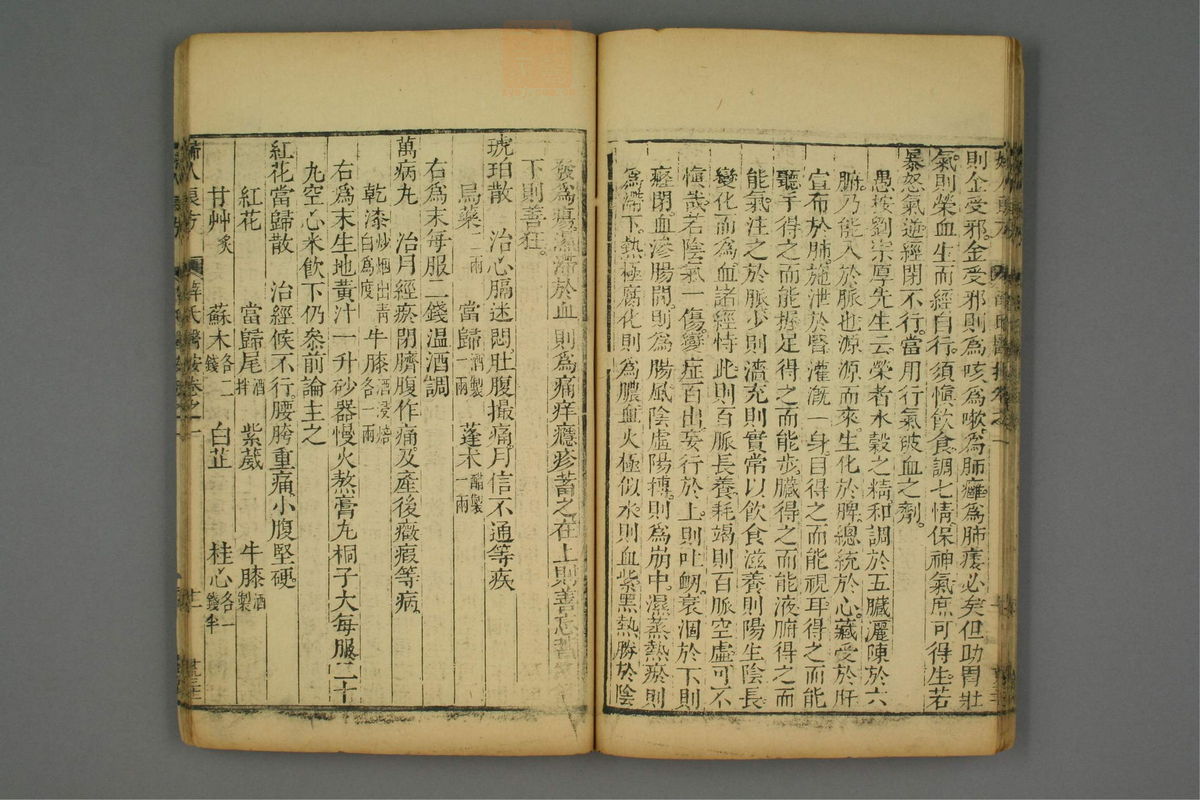 則金受邪金受邪則為咳為嗽為肺癰為肺痿必矣但助胃壯
氣則榮血生而經自行須慎飲食調七情保神氣庶可得生若
暴怒氣逆經閉不行當用行氣破血之劑
愚按劉宗厚先生云榮者水穀之精和調於五臟灑陳於六
腑乃能入於脈也源源而來生化於脾總統於心藏受於肝
宣布於肺施泄於腎灌溉一身目得之而能視耳得之而能
聽手得之而能握足得之而能步臟得之而能液腑得之而
能氣注之於脈少則濇充則實常以飲食滋養則陽生陰長
變化而為血諸經恃此則百脈長養耗竭則百脈空虛可不
慎哉若陰氣一傷變症百出妄行於上則吐衂衰涸於下則
虛閉血滲腸間則為腸風陰虛陽搏則為崩中濕蒸熱瘀則
為滯下熱極腐化則為膿血火極似水則血紫黑熱勝於陰
發為瘍濕滯於血則為痛痒癮疹蓄之在上則善忘蓄
下則善狂
琥珀散 治心膈迷悶肚腹撮痛月信不通等疾
烏藥二兩 當歸酒製一兩 蓬朮醋製一兩
右為末每服二錢溫酒調
萬病丸 治月經瘀閉臍腹作痛及產後癥瘕等病
乾漆炒烟出青白為度 牛膝酒浸焙各一兩
右為末生地黃汁一升砂器慢火熬膏丸桐子大每服二十
九空心米飲下仍叅前論主之
紅花當歸散 治經候不行腰胯重痛小腹堅硬
紅花 當歸尾酒拌 紫葳 牛膝酒製
甘艸炙 蘇木各二錢 白芷 桂心各一錢半
婦人良方 薛氏醫按卷之一